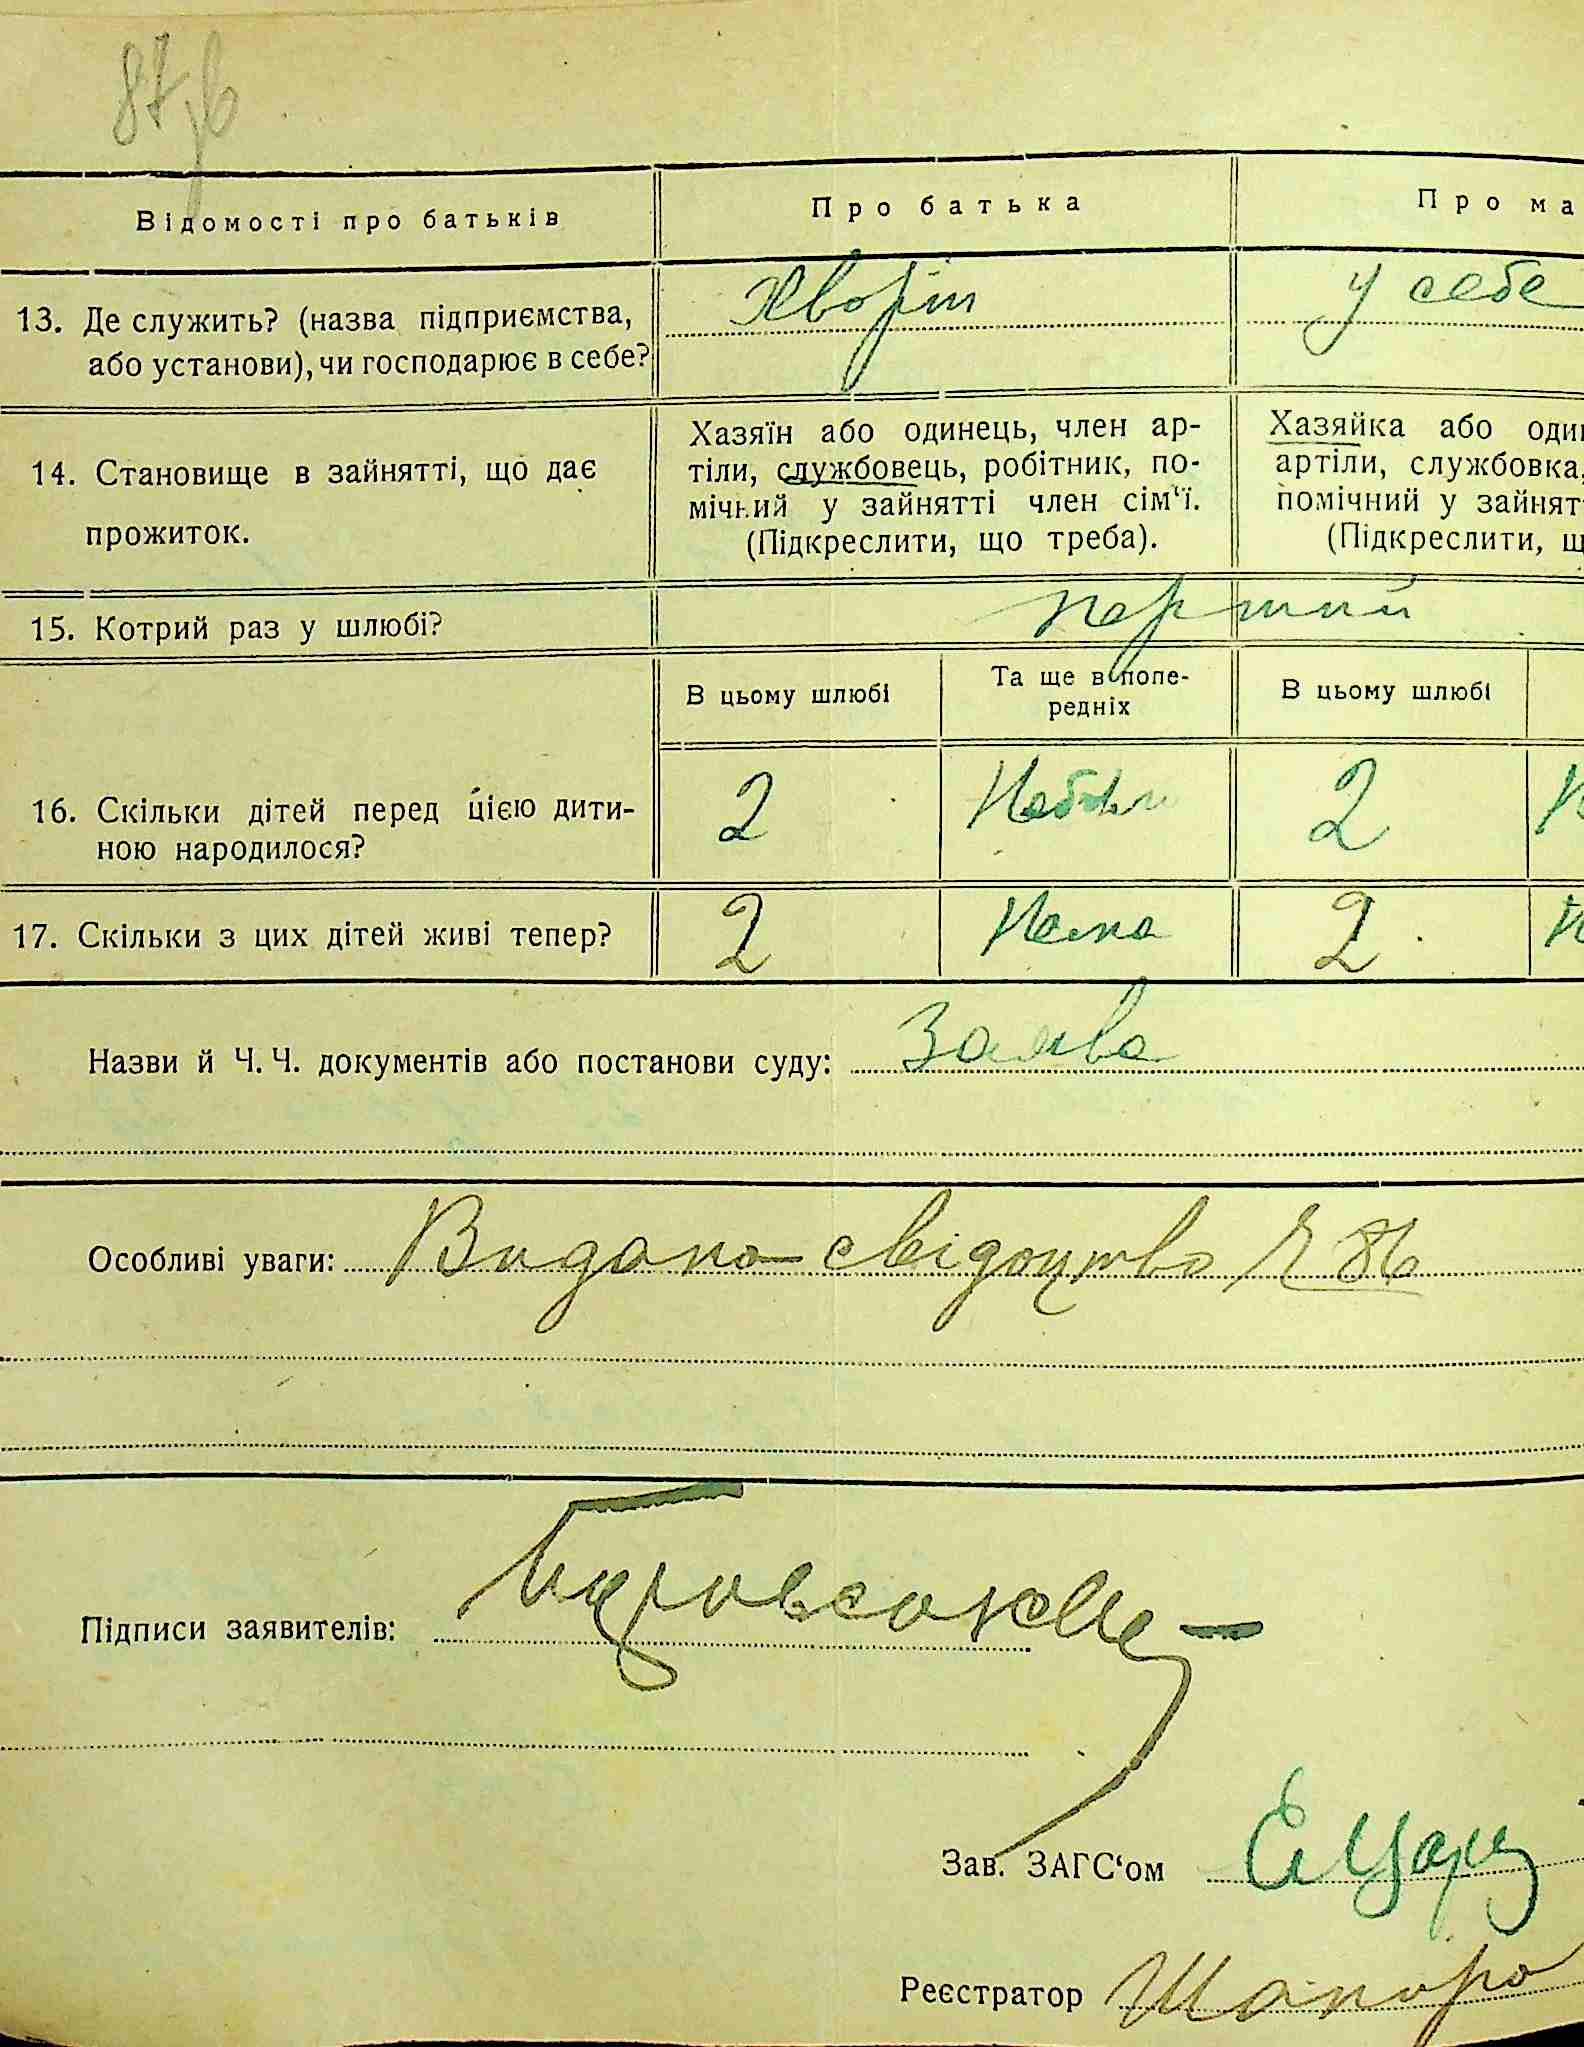 Відомості про батьків
Про батька
Про ма
13. Де служить? (назва підприємства, або установи), чи господарює в себе?
у себе
14. Становище в зайнятті, що дає прожиток.
Хазяїн або одинець, член ар-
тіли, службовець, робітник, по-
мічний у зайнятті член сім‘ї.
(Підкреслити, що треба).
Хазяйка або один
артіли, службовка,
помічний у зайнят
(Підкреслити, щ
15. Котрий раз у шлюбі?
перший
В цьому шлюбі
Та ще в попе-
редніх
В цьому шлюбі
16. Скільки дітей перед цією дити-
ною народилося?
2
2
17. Скільки з цих дітей живі тепер?
2
Нема
2
Назви й Ч. Ч. документів або постанови суду: Заява
Особливі уваги: Видано свідоцтво № 86
Підписи заявителів:
Зав. ЗАГС‘ом
Реєстратор Шапиро